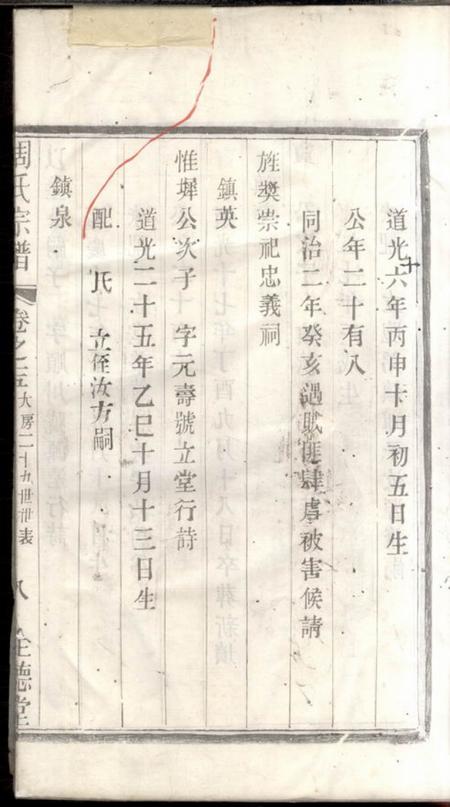 道光十六年丙申十月初五日生
公年二十有八
同治二年癸亥遇賊匪肆虐被害候請
旌奬崇祀忠義祠
鎮英
惟墀公次子 字元壽號立堂行詩
道光二十五年乙巳十月十三日生
配 氏 立侄汝方嗣
鎮泉
周氏宗譜 卷之五 大房二十九世世表 八 全德堂